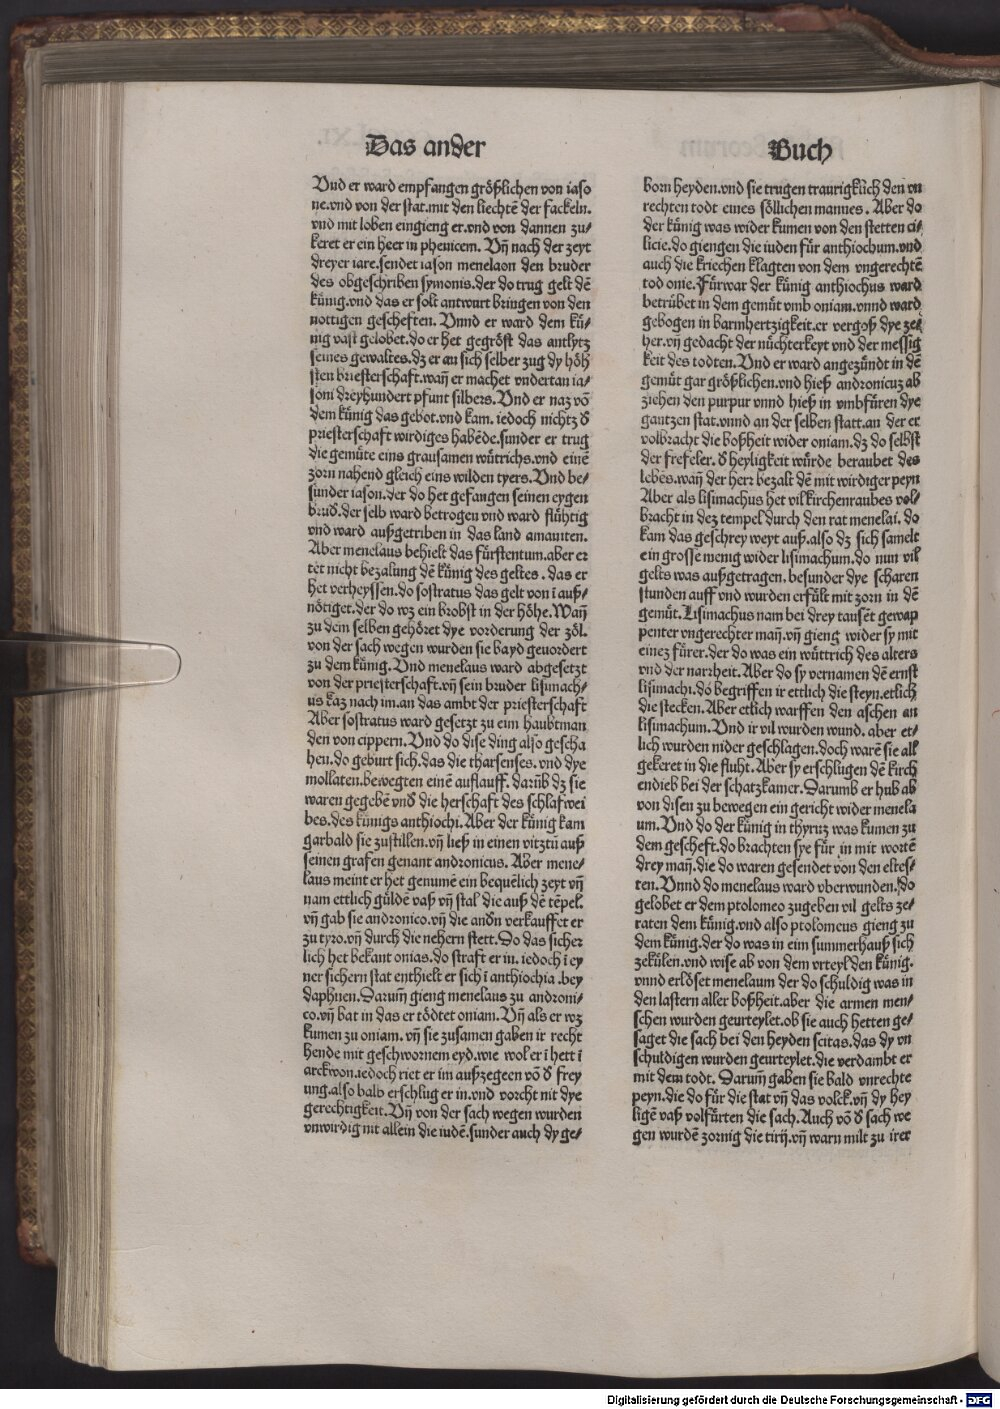 Das ander
Buch
Vnd er ward empfangen größlichen von iaso
ne.vnd von der stat.mit den liechtẽ der fackeln.
vnd mit loben eingieng er.vnd von dannen zu⸗
keret er ein heer in phenicem. Vñ nach der zeyt
dreyer iare.sendet iason menelaon den bruder
des obgeschriben symonis.der do trug gelt dẽ
künig.vnd das er solt antwurt bringen von den
nottigen gescheften. Vnnd er ward dem kü⸗
nig vast gelobet.do er het gegröst das anthytz
seines gewaltes.dz er an sich selber zug dy höh
sten briesterschaft.wañ er machet vndertan ia⸗
soni dreyhundert pfunt silbers.Vnd er naz võ
dem künig das gebot.vnd kam. iedoch nichtz d̕
priesterschaft wirdiges habẽde.sunder er trug
die gemüte eins grausamen wütrichs.vnd einẽ
zorn nahend gleich eins wilden tyers.Vnd be⸗
sunder iason.der do het gefangen seinen eygen
brud̕.der selb ward betrogen vnd ward flühtig
vnd ward außgetriben in das land amaniten.
Aber menelaus behielt das fürstentum.aber er
tet nicht bezalung dẽ künig des geltes. das er
het verheyssen.do sostratus das gelt von ĩ auß⸗
nötiget.der do wz ein brobst in der höhe.Wañ
zu dem selben gehöret dye vorderung der zöl.
von der sach wegen wurden sie bayd geuordert
zu dem künig. Vnd menelaus ward abgesetzt
von der priesterschaft.vñ sein bruder lisimach⸗
us kaz nach im.an das ambt der priesterschaft
Aber sostratus ward gesetzt zu eim haubtman
den von cippern.Vnd do dise ding also gescha
hen.do geburt sich.das die tharsenses. vnd dye
mollaten.bewegten einẽ auflauff. darũb dz sie
waren gegebẽ vnd̕ die herschaft des schlafwei
bes.des künigs anthiochi.Aber der künig kam
garbald sie zustillen.vñ ließ in einen vitztũ auß
seinen grafen genant andronicus. Aber mene⸗
laus meint er het genumẽ ein bequẽlich zeyt vñ
nam ettlich güldẽ vaß vñ stal die auß dẽ tẽpel.
vñ gab sie andronico.vñ die and̕n verkauffet er
zu tyro.vñ durch die nehern stett.Do das sicher
lich het bekant onias.do straft er in. iedoch ĩ ey
ner sichern stat enthielt er sich ĩ anthiochia .bey
daphnen.Darum̃ gieng menelaus zu androni⸗
co.vñ bat in das er tödtet oniam.Vñ als er wz
kumen zu oniam. vñ sie zusamen gaben ir recht
hende mit geschwornem eyd.wie wol er ĩ hett ĩ
arckwon.iedoch riet er im außzegeen võ d̕ frey
ung.also balb erschlug er in.vnd vorcht nit dye
gerechtigkeit.Vñ von der sach wegen wurden
vnwirdig nit allein die iudẽ.sunder auch dy ge⸗
born heyden.vnd sie trugen traurigklich den vn
rechten todt eines söllichen mannes. Aber do
der künig was wider kumen von den stetten ci⸗
licie.do giengen die iuden für anthiochum.vnd
auch die kriechen klagten von dem vngerechtẽ
tod onie.Fürwar der künig anthiochus ward
betrübet in dem gemüt vmb oniam.vnnd ward
gebogen in barmhertzigkeit.er vergoß dye ze⸗
her.vñ gedacht der nüchterkeyt vnd der messig
keit des todten.Vnd er ward angezündt in dẽ
gemüt gar größlichen.vnd hieß andronicuz ab
ziehen den purpur vnnd hieß in vmbfüren dye
gantzen stat.vnnd an der selben statt.an der er
volbracht die boßheit wider oniam.dz do selbst
der frefeler.d̕ heyligkeit würde beraubet des
lebẽs.wañ der herr bezalt dẽ mit wirdiger peyn
Aber als lisimachus het vil kirchenraubes vol⸗
bracht in dez tempel durch den rat menelai. do
kam das geschrey weyt auß.also dz sich samelt
ein grosse menig wider lisimachum.do nun vil
gelts was außgetragen. besunder dye scharen
stunden auff vnd wurden erfült mit zorn in dẽ
gemüt.Lisimachus nam bei drey tausẽt gewap
penter vngerechter mañ.vñ gieng wider sy mit
einez fürer.der do was ein wüttrich des alters
vnd der narrheit.Aber do sy vernamen dẽ ernst
lisimachi.do begriffen ir ettlich die steyn.etlich
die stecken. Aber etlich warffen den aschen an
lisimachum. Vnd ir vil wurden wund. aber et⸗
lich wurden nider geschlagen.doch warẽ sie all
gekeret in die fluht.Aber sy erschlugen dẽ kirch
endieb bei der schatzkamer.Darumb er hub ab
von disen zu bewegen ein gericht wider menela
um.Vnd do der künig in thyruz was kumen zu
dem gescheft.do brachten sye für in mit wortẽ
drey mañ.die do waren gesendet von den eltes⸗
ten. Vnnd do menelaus ward vberwunden.do
gelobet er dem ptolomeo zugeben vil gelts ze⸗
raten dem künig.vnd also ptolomeus gieng zu
dem künig.der do was in eim summerhauß sich
zekülen.vnd wise ab von dem vrteyl den künig.
vnnd erlöset menelaum der do schuldig was in
den lastern aller boßheit.aber die armen men⸗
schen wurden geurteylet.ob sie auch hetten ge⸗
saget die sach bei den heyden scitas.das dy vn
schuldigen wurden geurteylet.die verdambt er
mit dem todt. Darum̃ gaben sie bald vnrechte
peyn.die do für die stat vñ das volck.vñ dy hey
ligẽ vaß volfürten die sach. Auch võ d̕ sach we
gen wurdẽ zornig die tirij.vñ warn milt zu irer
Digitalisierung gefördert durch die Deutsche Forschungsgemeinschaft - DFG